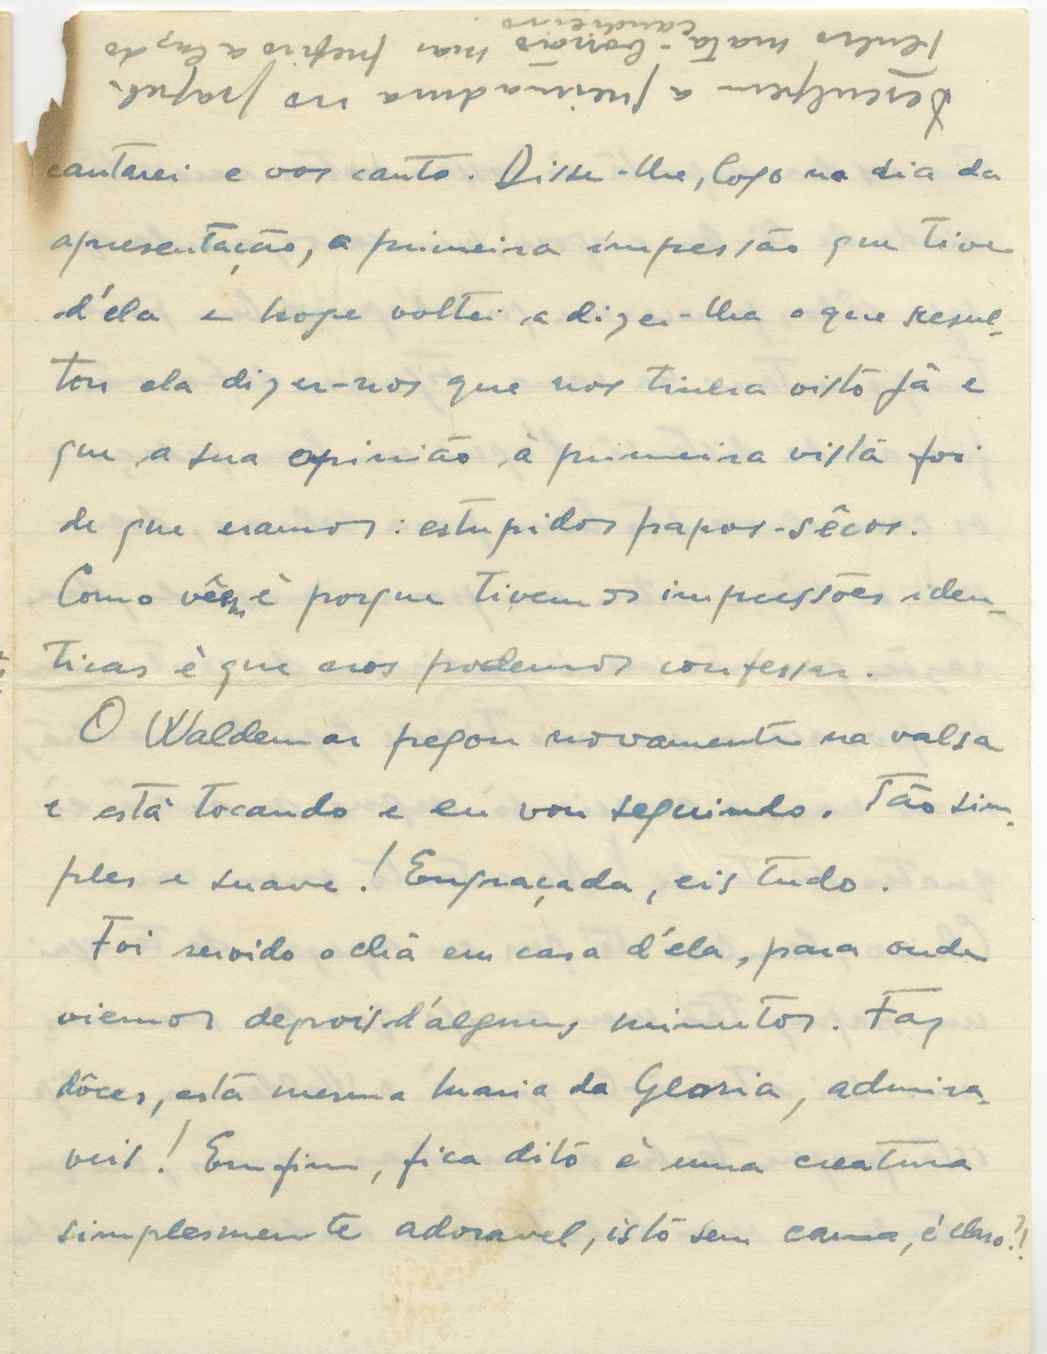 Desculpem a queimadura no papel.
tenho mata-borrão mas prefiro a luz do
candieiro.
cantarei e vos canto. Disse-lhe, logo no dia da
apresentação, a primeira impressão que tive
d'éla e hoje voltei a dizer-lha o que resul-
tou ela dizer-nos que nos tinha visto já e
que a sua opinião à primeira vista foi
de que eramos: estupidos papos-sêcos.
Como vêem è porque tivemos impressões iden-
ticas è que nos podemos confessar.
O Waldemar pegou novamente na valsa
e está tocando e eu vou seguindo. Tão sim-
ples e suave! Engraçada, eis tudo.
Foi servido o chá em casa d'éla, para onde
viemos depois d'alguns minutos. Faz
dôces, està mesma Maria da Gloria, admira-
veis! Emfim, fica dito è uma creatura
simplesmente adoravel, isto sem cama, é claro?!